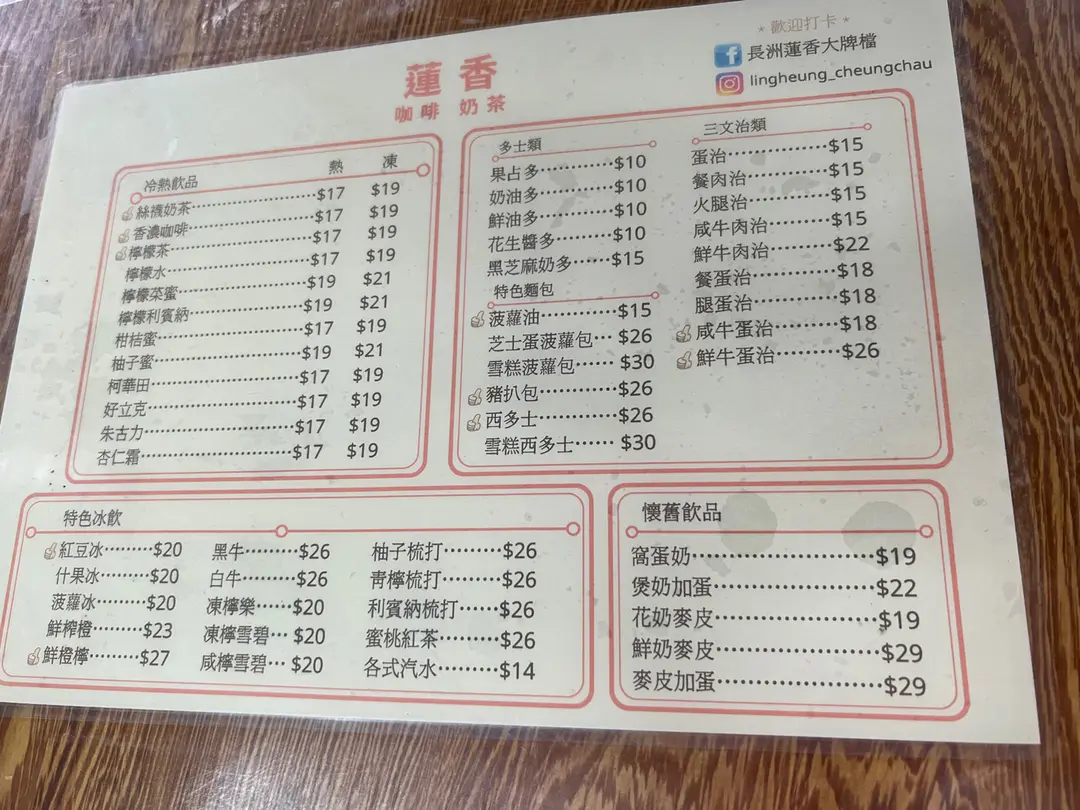 蓮香
咖啡 奶茶
歡迎打卡
長洲蓮香大牌檔
lingheung_cheungchau
冷熱飲品 熱 凍
絲襪奶茶 $17 $19
香濃咖啡 $17 $19
檸檬茶 $17 $19
檸檬水 $17 $19
檸檬菜蜜 $19 $21
檸檬利賓納 $19 $21
柑桔蜜 $17 $19
柚子蜜 $19 $21
柯華田 $17 $19
好立克 $17 $19
朱古力 $17 $19
杏仁霜 $17 $19
多士類
果占多 $10
奶油多 $10
鮮油多 $10
花生醬多 $10
黑芝麻奶多 $15
特色麵包
菠蘿油 $15
芝士蛋菠蘿包 $26
雪糕菠蘿包 $30
豬扒包 $26
西多士 $26
雪糕西多士 $30
三文治類
蛋治 $15
餐肉治 $15
火腿治 $15
咸牛肉治 $15
鮮牛肉治 $22
餐蛋治 $18
腿蛋治 $18
咸牛蛋治 $18
鮮牛蛋治 $26
特色冰飲
紅豆冰 $20
什果冰 $20
菠蘿冰 $20
鮮榨橙 $23
鮮橙檸 $27
黑牛 $26
白牛 $26
凍檸樂 $20
凍檸雪碧 $20
咸檸雪碧 $20
柚子梳打 $26
青檸梳打 $26
利賓納梳打 $26
蜜桃紅茶 $26
各式汽水 $14
懷舊飲品
窩蛋奶 $19
煲奶加蛋 $22
花奶麥皮 $19
鮮奶麥皮 $29
麥皮加蛋 $29